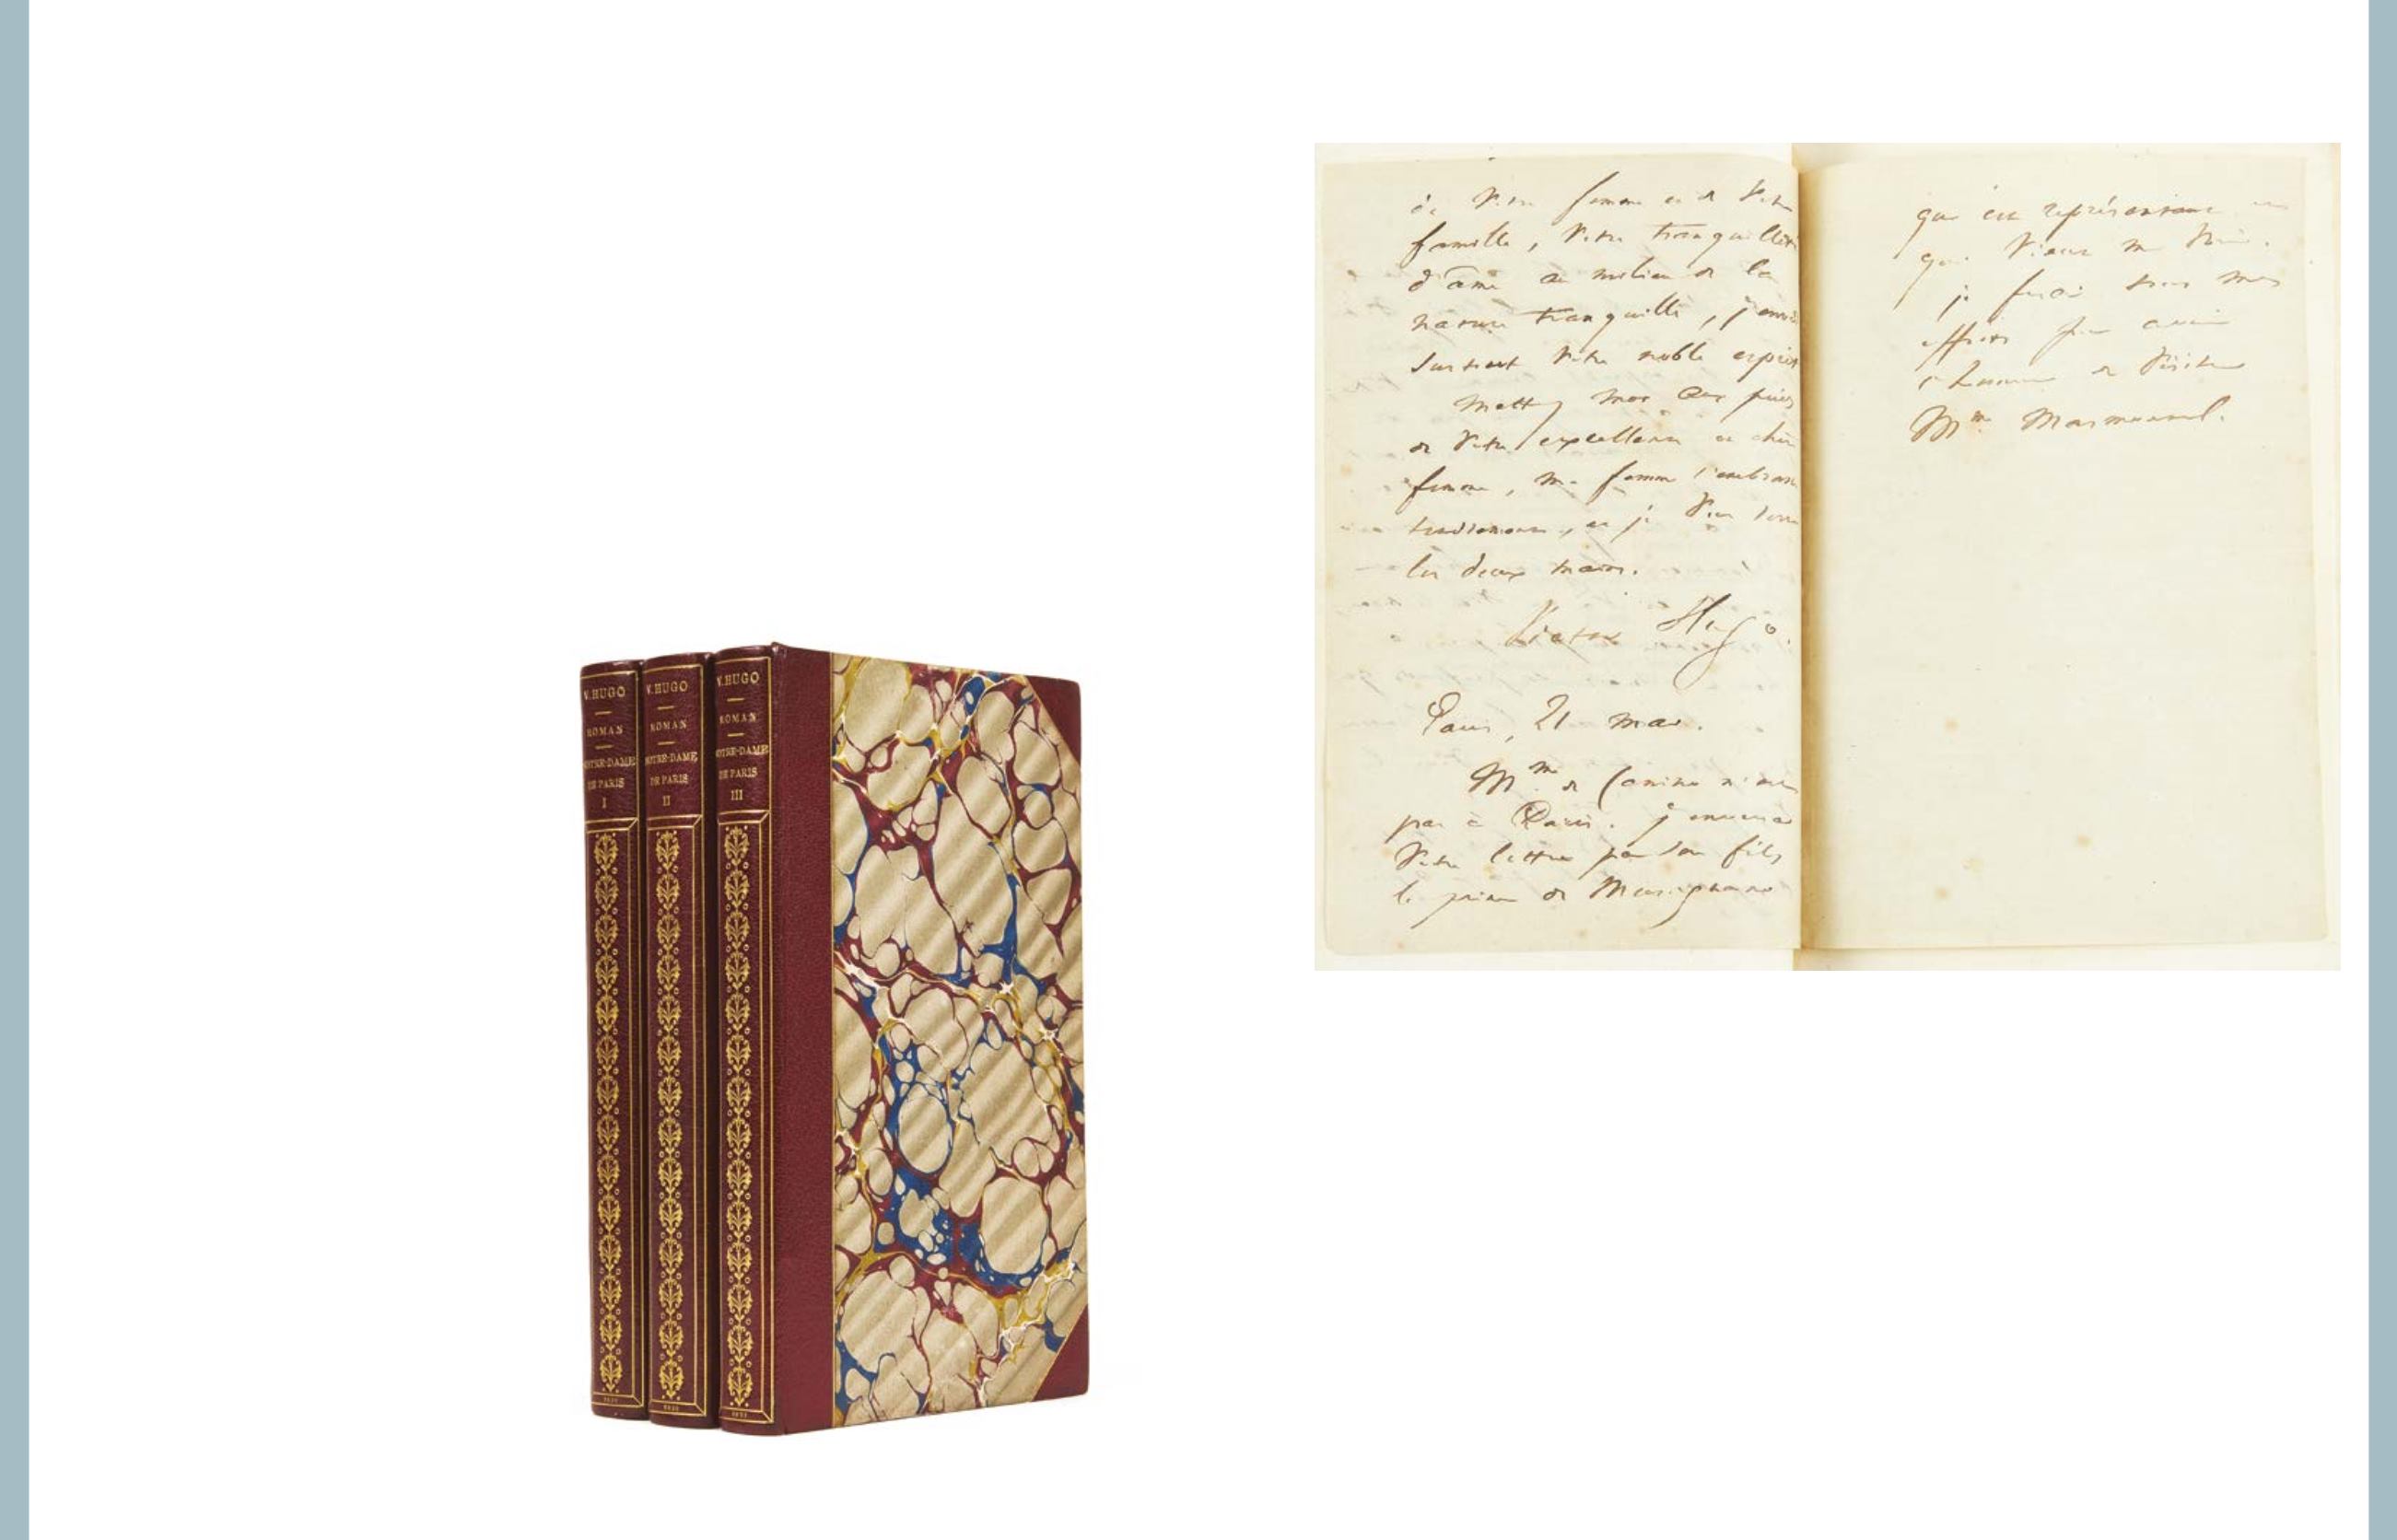 V. HUGO
ROMAN
NOTRE-DAME
DE PARIS
I
V. HUGO
ROMAN
NOTRE-DAME
DE PARIS
II
V. HUGO
ROMAN
NOTRE-DAME
DE PARIS
III
de votre femme et de votre
famille, votre tranquillité
d'âme au milieu de la
nature tranquille, j'envie
surtout votre noble esprit
Mettez moi aux pieds
de votre excellente et chère
femme, ma femme l'embrasse
tendrement, et je vous serre
les deux mains.
Victor Hugo.
Paris, 21 mai.
Mme de Canino n'est
pas à Paris. j'enverrai
votre lettre par son fils
le prince de Musignano
qui est représentant et
qui vient me voir.
je ferai tous mes
efforts pour avoir
l'honneur de visiter
Mme Marmontel.